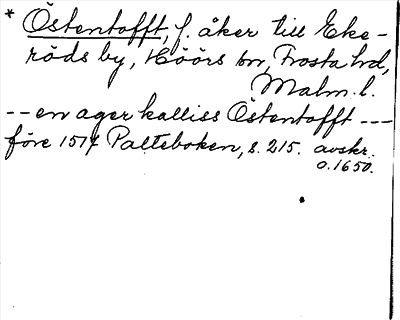 * Östentofft, f. åker till Eke-
röds by, Höörs sn, Frosta hd,
Malm. l.
-- en ager kalliss Östentofft ---
före 1517 Palteboken, s. 215. avskr.
o. 1650.